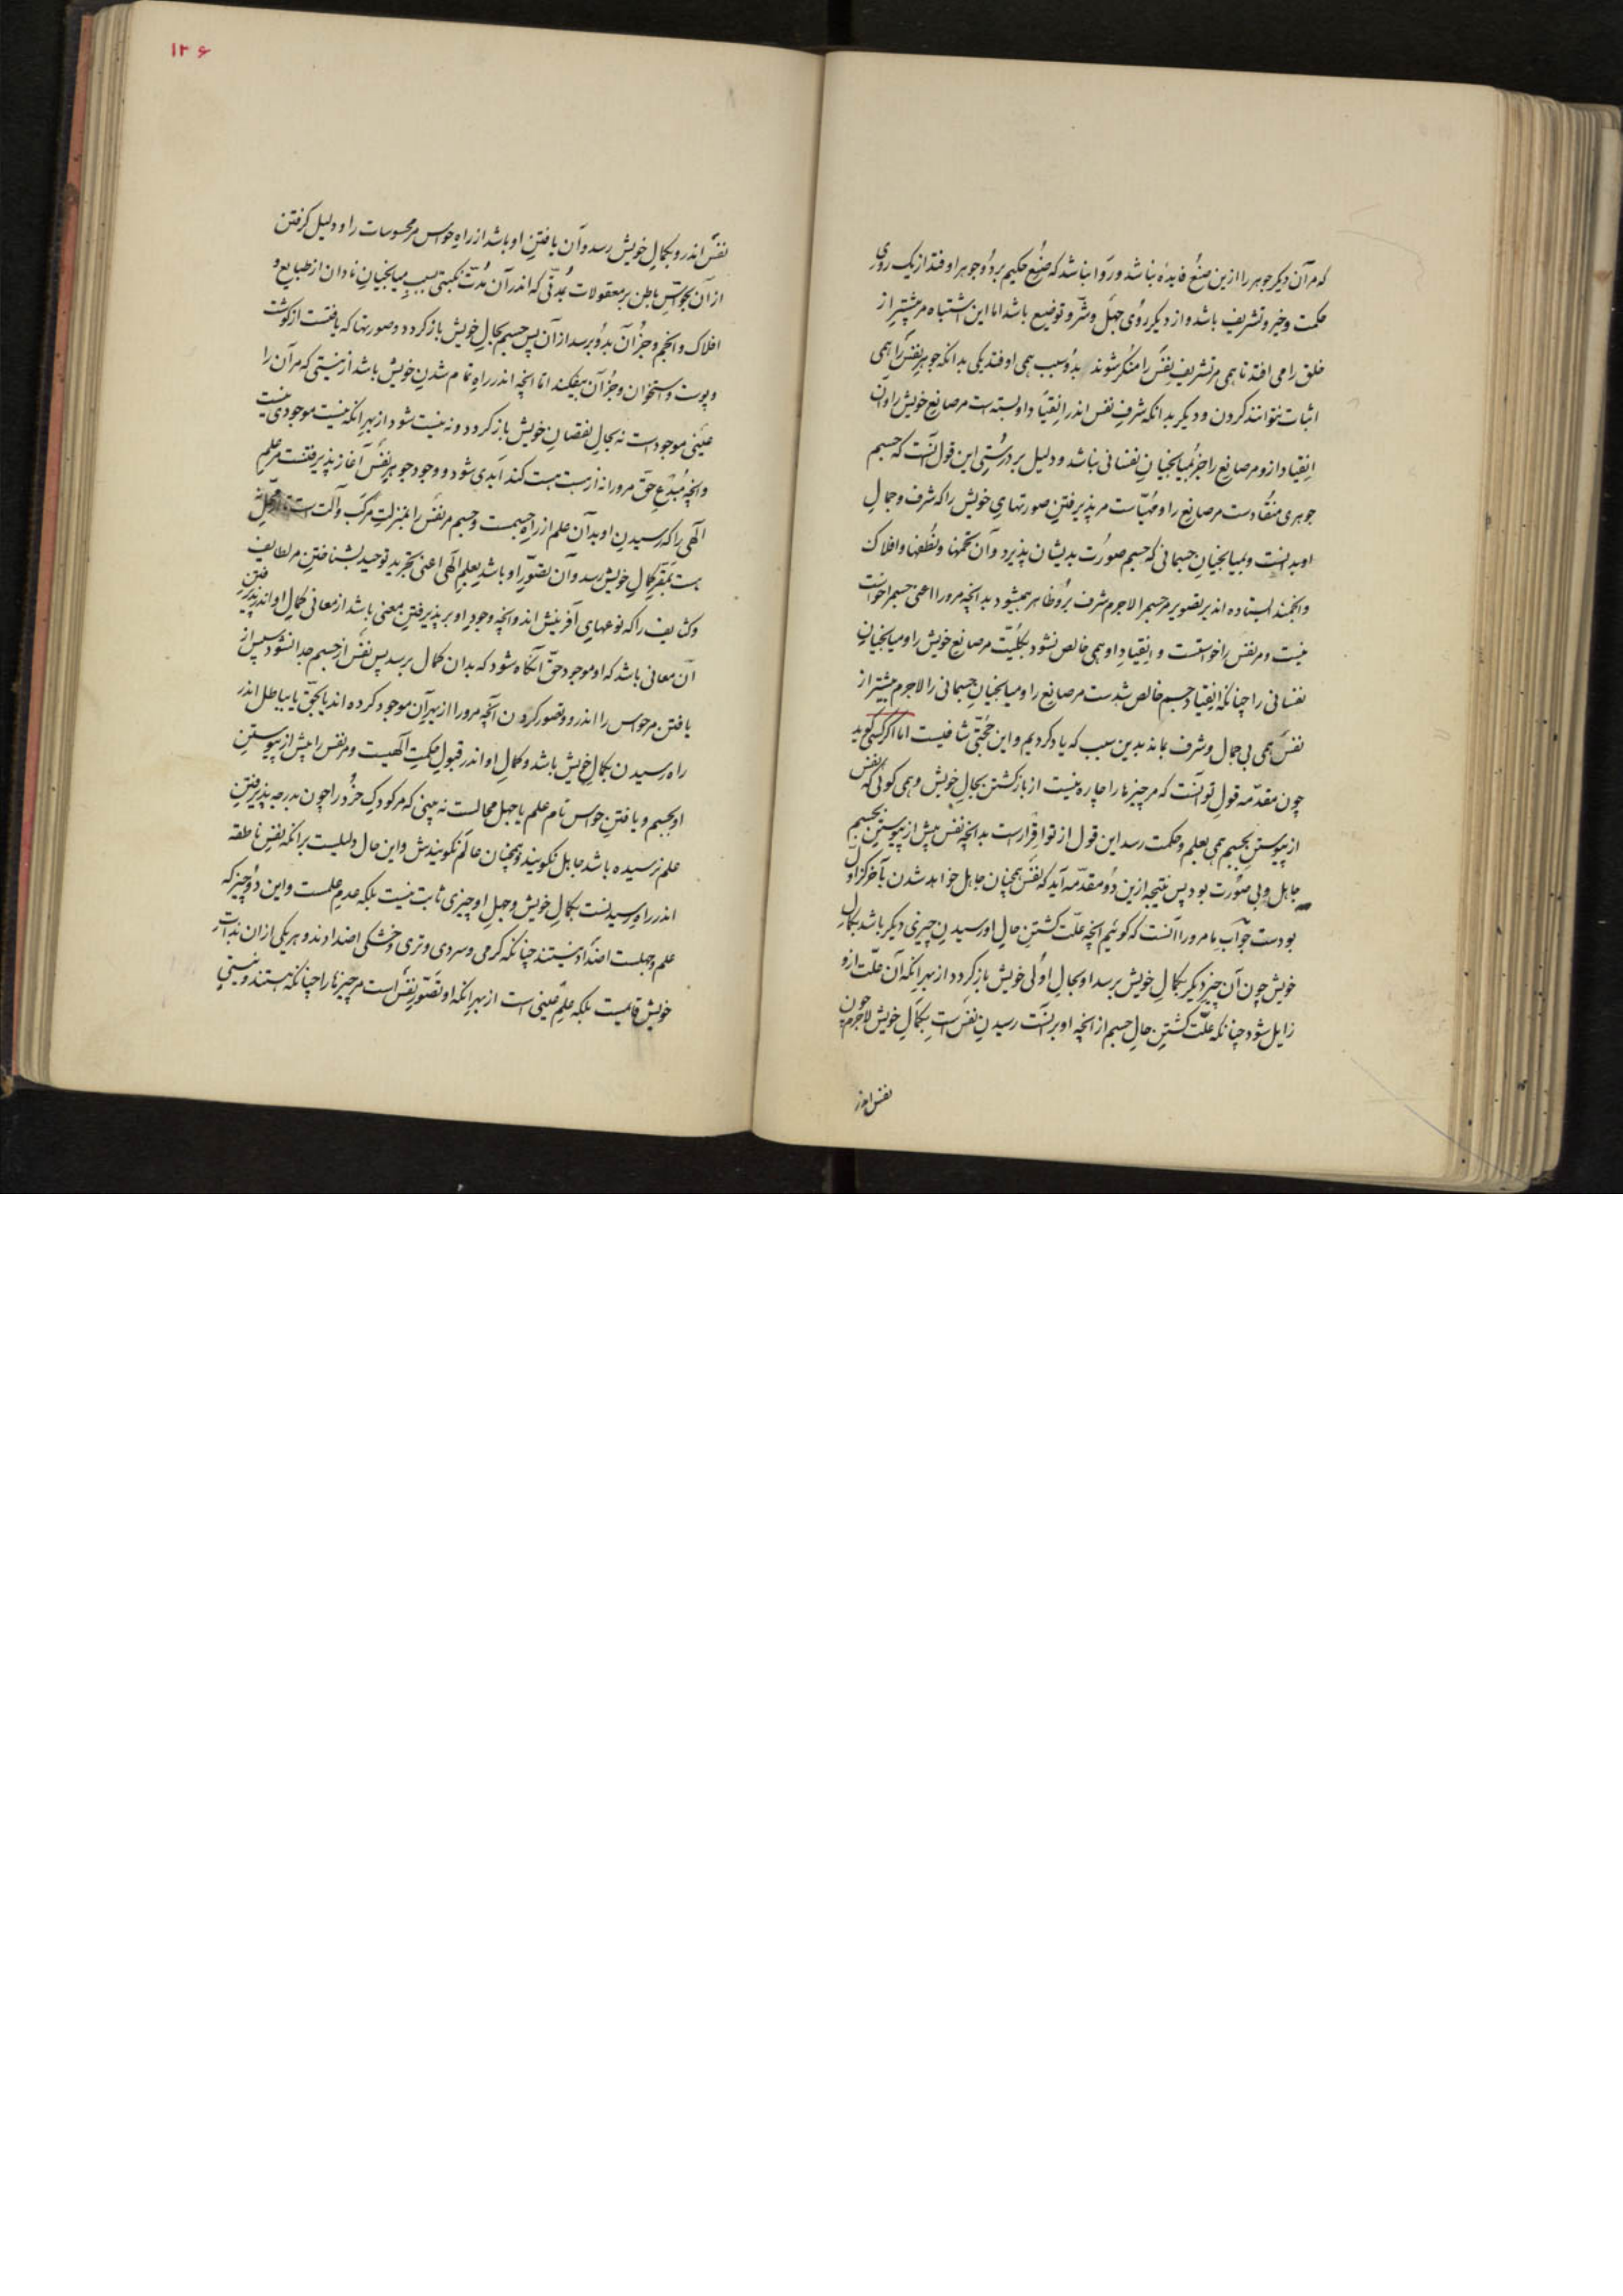 که مر آن دیگر جوهر را ازین صنع فایده نباشد و روا نباشد که صنع حکیم بر دو جوهر اوفتد از یک روی
حکمت و خیر و تشریف باشد و از دیگر روی جهل و شر و توضیع باشد اما این اشتباه مر بیشتر از
خلق را می افتد تا همی مر تشریف نفس را منکر شوند بدو سبب همی اوفتد یکی بدانکه جوهر نفس را همی
اثبات نتوانند کردن و دیگر بدانکه شرف نفس اندر انقیاد او بسته است مر صانع خویش را و آن
انقیاد ازو مر صانع را جز بمیانجیان نفسانی نباشد و دلیل بر درستی این قول آنست که جسم
جوهری منقادست مر صانع را و مهیاست مر پذیرفتن صورتهای خویش را که شرف و جمال
او بدانست و بمیانجیان جسمانی که جسم صورت بدیشان پذیرد و آن تخمها و نطفها و افلاک
و انجمند ایستاده اند بر تصویر مر جسم را لاجرم شرف برو ظاهر همیشود بدانچه مرورا اعنی جسم را خواست
نیست و مر نفس را خواستست و انقیاد او همی خالص نشود بکلیت مر صانع خویش را و میانجیان
نفسانی را چنانکه انقیاد جسم خالص شدست مر صانع را و میانجیان جسمانی را لاجرم بیشتر از
نفس همی بی جمال و شرف بماند بدین سبب که یاد کردیم و این حجتی شافیست اما اگر کسی گوید
چون مقدمه قول تو آنست که مر چیزها را چاره نیست از بازگشتن بحال خویش و همی گوئی که نفس
از پیوستن بجسم همی بعلم و حکمت رسد این قول از تو اقرارست بدانچه نفس پیش از پیوستن بجسم
جاهل و بی صورت بود پس نتیجه ازین دو مقدمه آید که نفس همچنان جاهل خواهد شدن بآخر کز اول
بودست جواب ما مرورا آنست که گوئیم انچه علت گشتن حال او رسیدن چیزی دیگر باشد بکمال
خویش چون آن چیز دیگر بکمال خویش برسد او بحال اولی خویش باز گردد از بهر انکه آن علت ازو
زایل شود چنانکه علت گشتن حال جسم از انچه او برانست رسیدن نفس است بکمال خویش لاجرم چون
نفس اندر
۱۲۶
نفس اندرو بکمال خویش رسد و آن یافتن او باشد از راه حواس مر محسوسات را و دلیل گرفتن
از آن بحواس باطن بر معقولات بمدتی که اندر آن مدت نکبتی بسبب میانجیان نادان از طبایع و
افلاک و انجم و جز آن بدو برسد از آن پس جسم بحال خویش باز گردد و صورتها که یافتست از گوشت
و پوست و استخوان و جز آن بیفکند اما انچه اندر راه تمام شدن خویش باشد از نیستی که مر آن را
عینی موجود است نه بحال نقصان خویش باز گردد و نه نیست شود از بهر انکه نیست موجودی نیست
و انچه مبدع حق مرورا نه از هست هست کند ابدی شود و وجود جوهر نفس آغاز پذیرفتنست مر علم
الهی را که رسیدن او بدان علم از راه جسمست و جسم مر نفس را بمنزلت مرکب و آلت است
بمقر کمال خویش رسد و آن تصور او باشد بعلم الهی اعنی بتجرید توحید بشناختن مر لطایف
و کثایف را که نوعهای آفرینش اند و انچه وجود او بر پذیرفتن معنی باشد از معانی کمال او اندر پذیرفتن
آن معانی باشد که او موجود حق آنگاه شود که بدان کمال برسد پس نفس از جسم جدا نشود سپس از
یافتن مر حواس را اندرو و تصور کردن آنچه مرورا از بهر آن موجود کرده اند یا بحق یا بباطل اندر
راه رسیدن بکمال خویش باشد و کمال او اندر قبول حکمت الهیست و مر نفس را پیش از پیوستن
او بجسم و یافتن حواس نام علم یا جهل محالست نه بینی که مر کودک خرد را چون بدرجه پذیرفتن
علم نرسیده باشد جاهل نگویند و همچنان عالم نگویندش و این حال دلیلست بر انکه نفس ناطقه
اندر راه رسیدنست بکمال خویش و جهل او چیزی ثابت نیست بلکه عدم علمست و این دو چیز که
علم و جهلست اضداد نیستند چنانکه گرمی و سردی و تری و خشکی اضدادند و هر یکی از ان بذات
خویش قائمست بلکه علم عینی است از بهر انکه او تصور نفس است مر چیزها را چنانکه هستند و نیستی